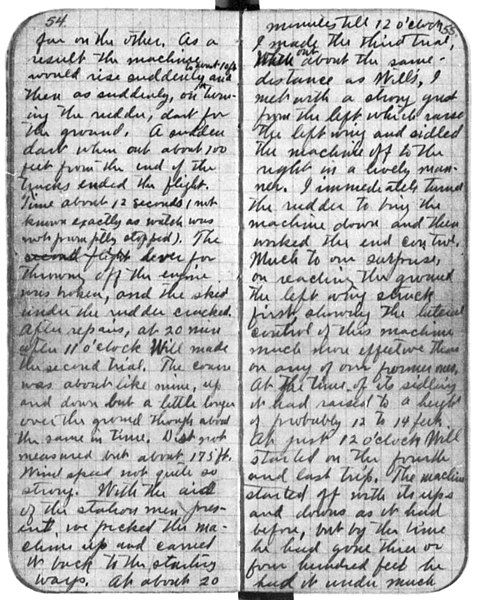 54.
far on the other. As a
result the machine
would rise suddenly to about 10 ft. and
then as suddenly, on turn-
ing the rudder, dart for
the ground. A sudden
dart when out about 100
feet from the end of the
tracks ended the flight.
Time about 12 seconds (not
known exactly as watch was
not promptly stopped). The
second flight lever for
throwing off the engine
was broken, and the skid
under the rudder cracked.
After repairs, at 20 min
after 11 o'clock Will made
the second trial. The course
was about like mine, up
and down but a little longer
over the ground though about
the same in time. Dist not
measured but about 175 ft.
Wind speed not quite so
strong. With the aid
of the station men pres-
ent, we picked the ma-
chine up and carried
it back to the starting
ways. At about 20
55
minutes till 12 o'clock
I made the third trial,
When out about the same
distance as Will's, I
met with a strong gust
from the left which raised
the left wing and sidled
the machine off to the
right in a lively man-
ner. I immediately turned
the rudder to bring the
machine down and then
worked the end control.
Much to our surprise,
on reaching the ground
the left wing struck
first, showing the lateral
control of this machine
much more effective than
on any of our former ones.
At the time of its sidling
it had raised to a height
of probably 12 to 14 feet.
At just 12 o'clock Will
started on the fourth
and last trip. The machine
started off with its ups
and downs as it had
before, but by the time
he had gone three or
four hundred feet he
had it under much